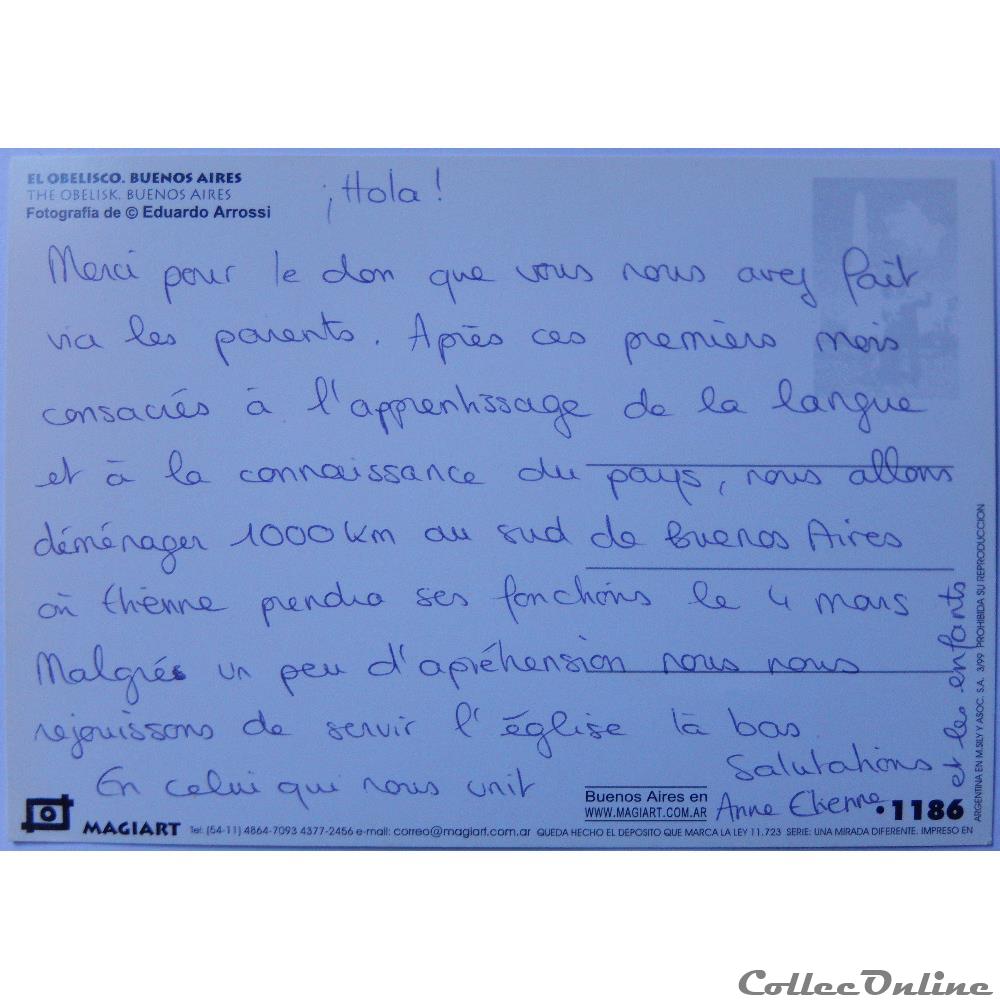 EL OBELISCO. BUENOS AIRES
THE OBELISK. BUENOS AIRES
Fotografia de © Eduardo Arrossi
¡Hola!
Merci pour le don que vous nous avez fait
via les parents. Après ces premiers mois
consacrés à l'apprentissage de la langue
et à la connaissance du pays, nous allons
déménager 1000 km au sud de Buenos Aires
où Etienne prendra ses fonctions le 4 mars
Malgrés un peu d'apréhension nous nous
rejouissons de servir l'église là bas
En celui qui nous unit
Salutations
Anne Etienne
et les enfants
Buenos Aires en
WWW.MAGIART.COM.AR
• 1186
MAGIART Tel: (54-11) 4864-7093 4377-2456 e-mail: correo@magiart.com.ar QUEDA HECHO EL DEPOSITO QUE MARCA LA LEY 11.723 SERIE: UNA MIRADA DIFERENTE. IMPRESO EN
ARGENTINA EN M.SILY Y ASOC. S.A. 3/99 PROHIBIDA SU REPRODUCCION
CollecOnline